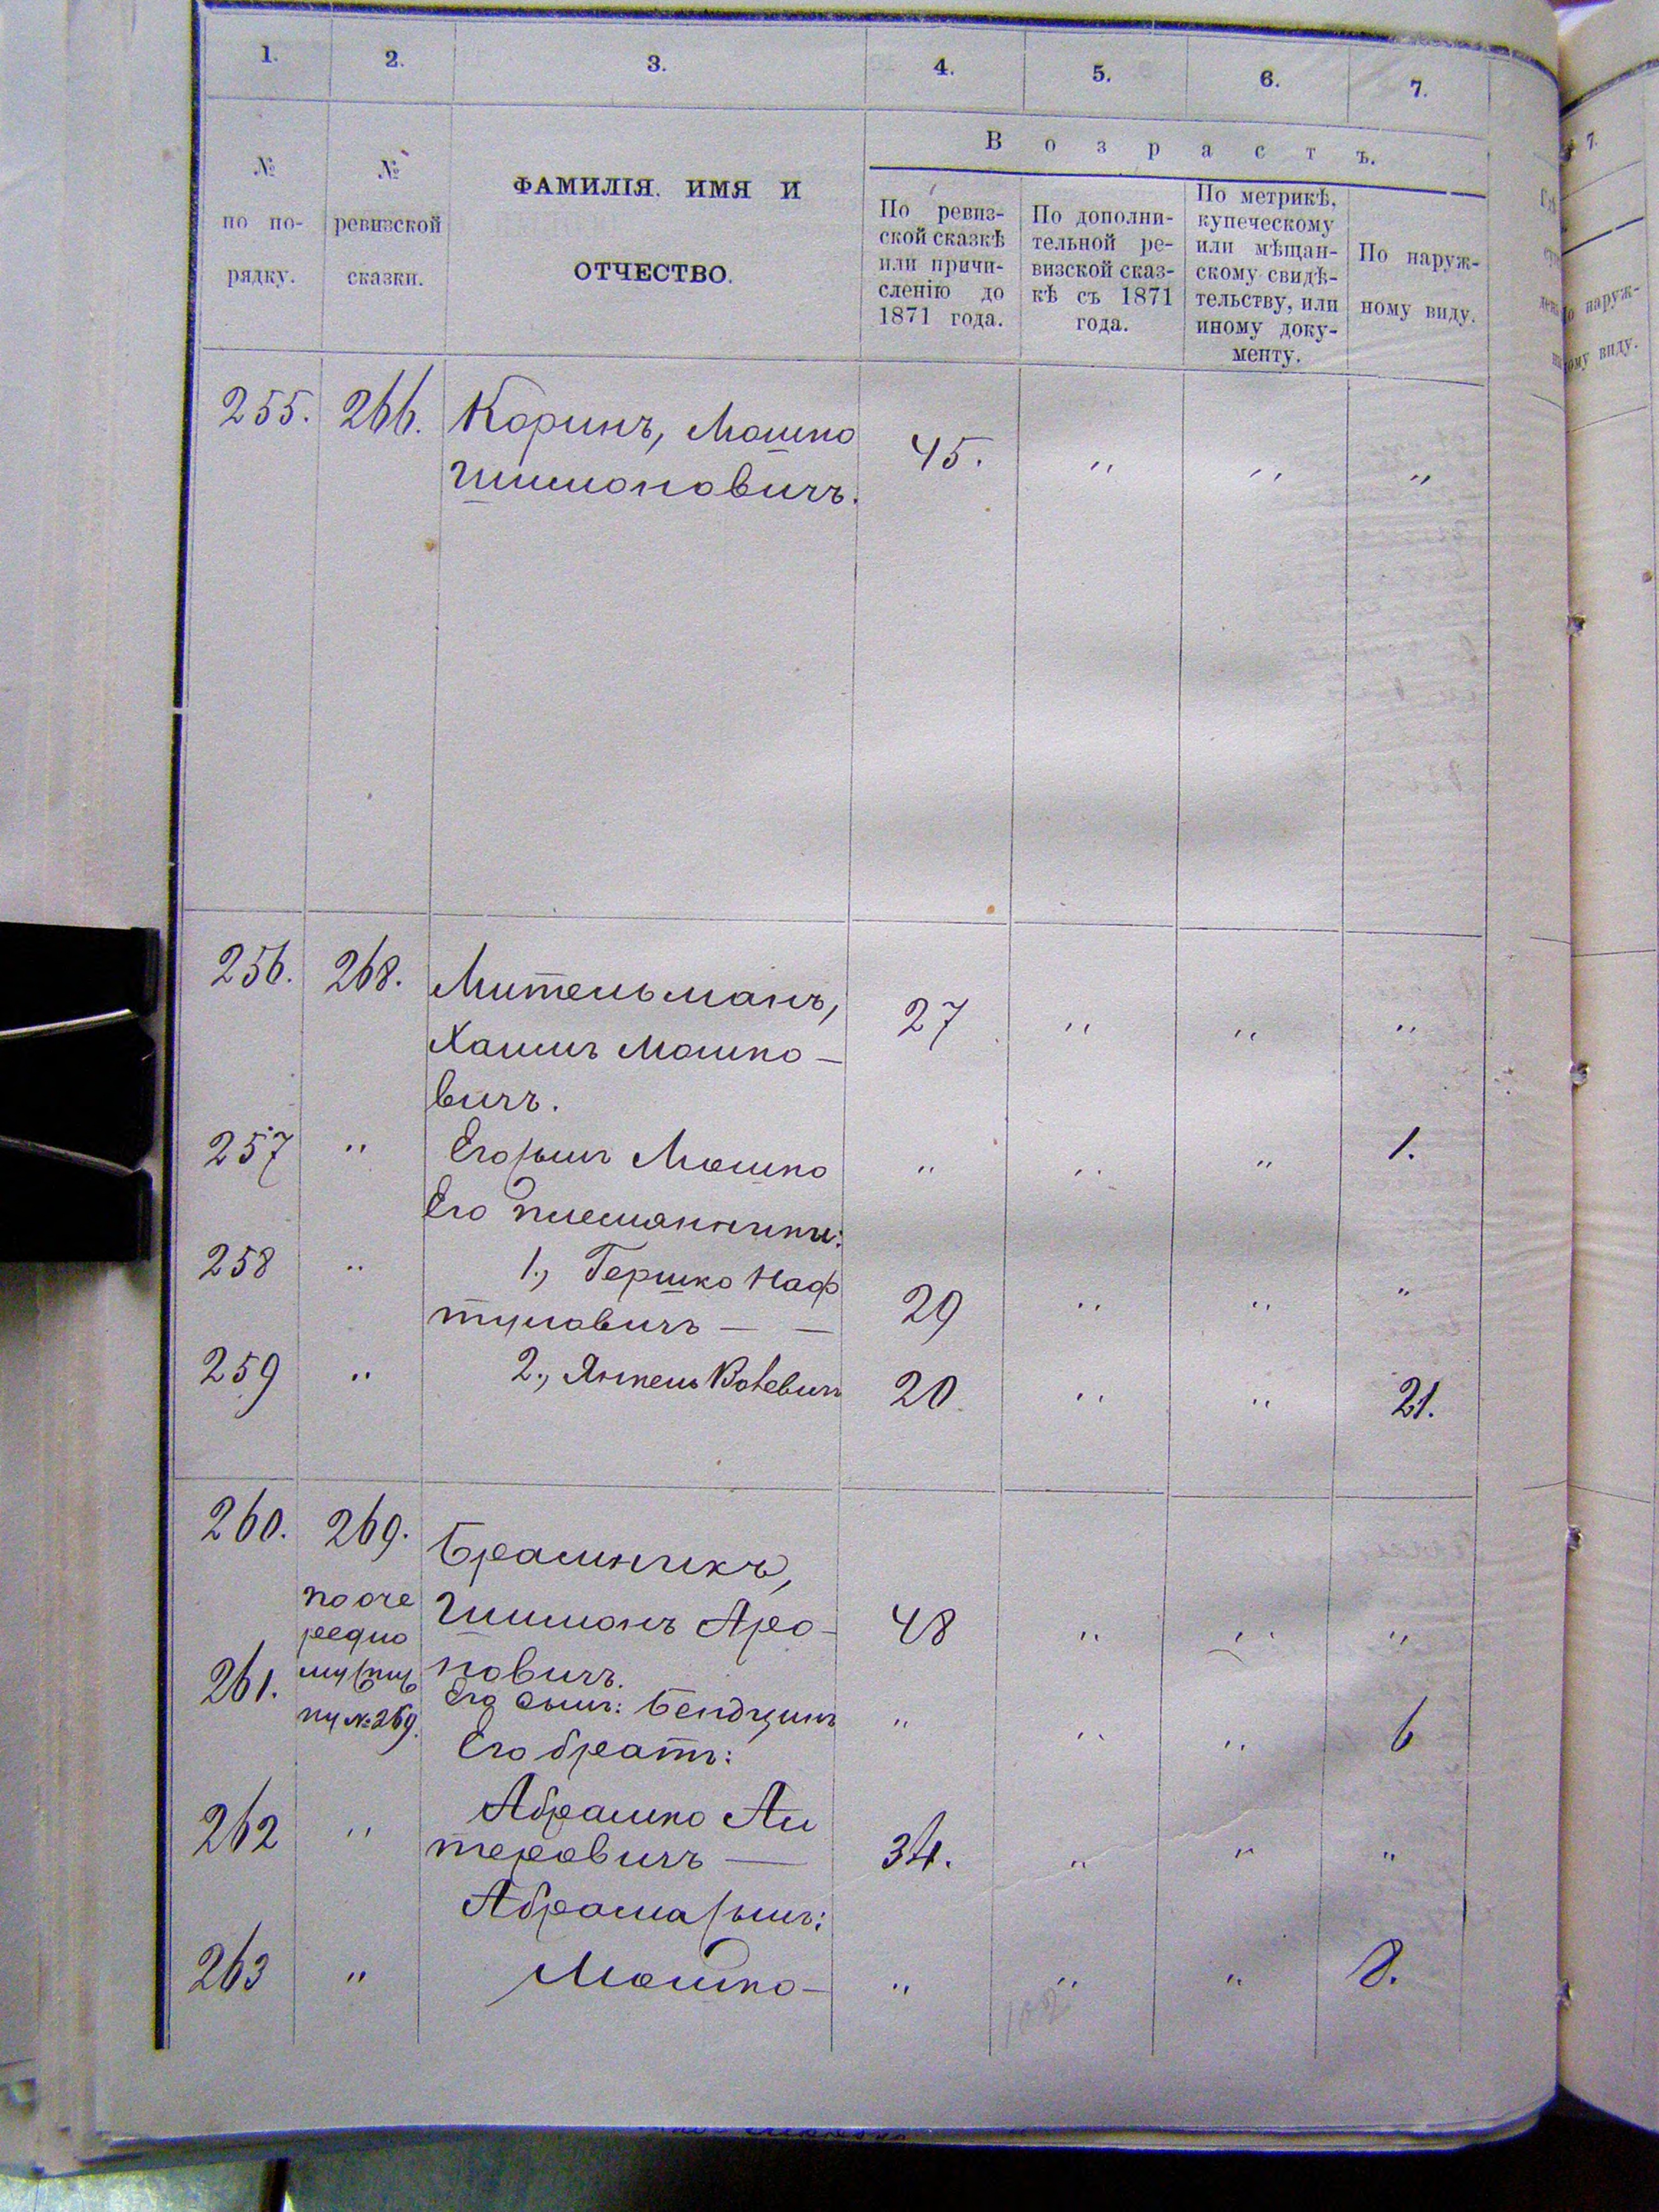 1. 2. 3. 4. 5. 6. 7.
В о з р а с т ъ.
№ по по-рядку.
№ ревизской сказки.
ФАМИЛІЯ. ИМЯ И
ОТЧЕСТВО.
По ревиз-
ской сказкѣ
или причи-
сленію до
1871 года.
По дополни-
тельной ре-
визской сказ-
кѣ съ 1871
года.
По метрикѣ,
купеческому
или мѣщан-
скому свидѣ-
тельству, или
иному доку-
менту.
По наруж-
ному виду.
255. 266. Коринъ, Мошко 45. " " "
Шимоновичъ.
256. 268. Мительманъ, 27 " " "
Хаимъ Мошко-
вичъ.
257 " Его сынъ Мошко " " " 1.
Его племянники:
258 " 1., Гершко Наф
туловичъ — — 29 " " "
259 " 2., Янкель Вольевичъ 20 " " 21.
260. 269. Брашникъ,
по оче Шимонъ Аро- 48 " " "
редно
261. му спи новичъ.
ску № 269. Его сынъ: Бенцумъ " " " 6
Его братъ:
262 " Абрашко Ли
теровичъ — 34. " " "
Абрама сынъ:
263 " Мошко — " " " 8.
102
7.
По наруж-
ному виду.